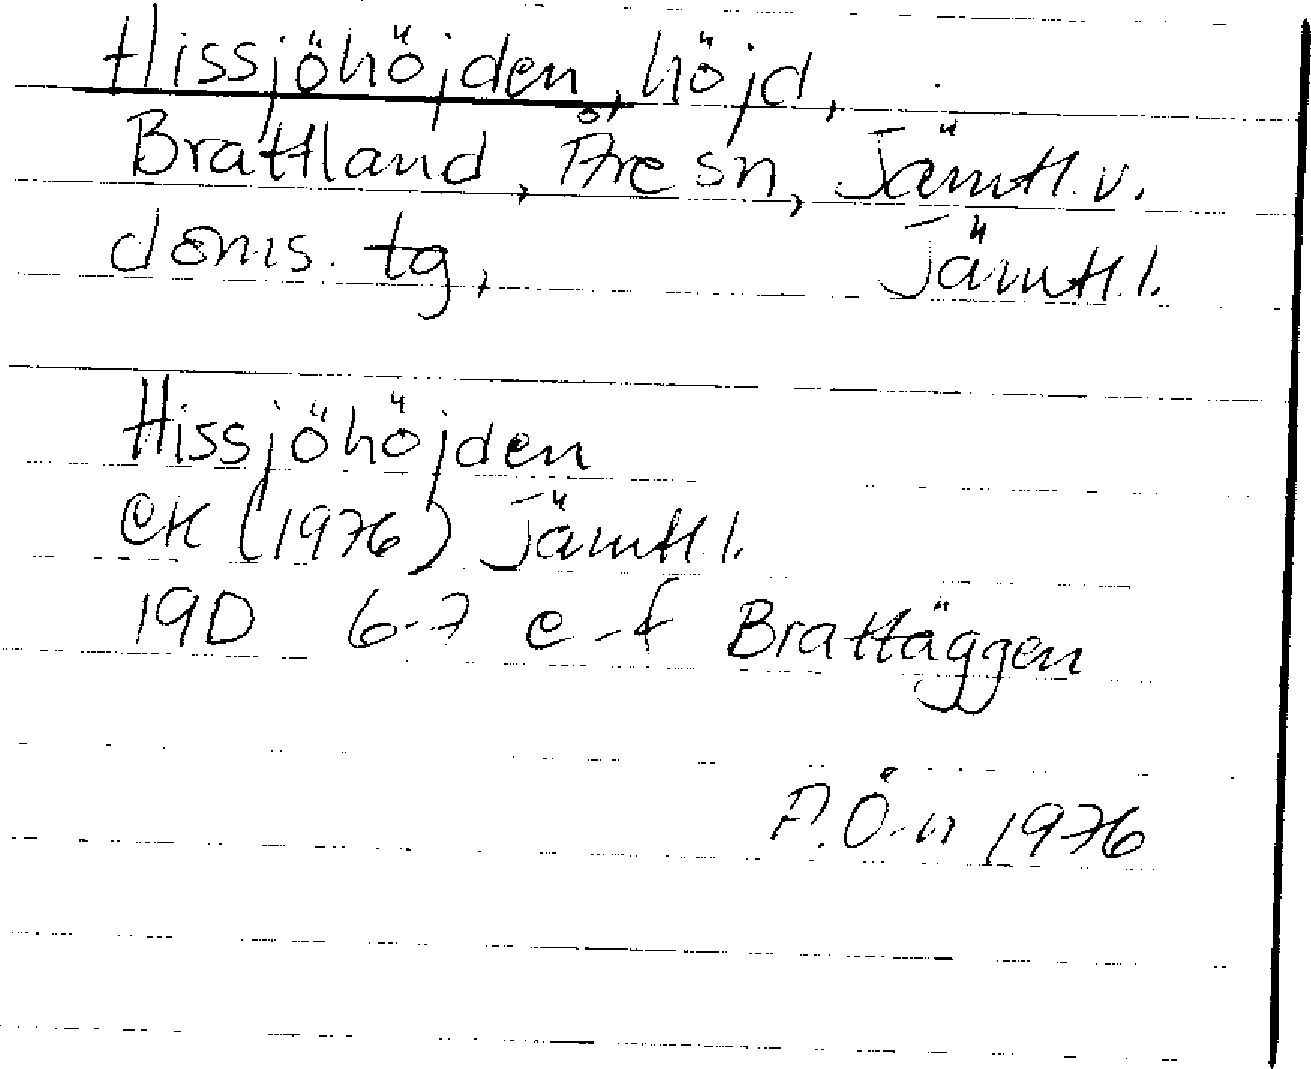 Hissjöhöjden, höjd,
Brattland, Åre sn, Jämtl. v.
doms. tg, Jämtl. l.
Hissjöhöjden
EK (1976) Jämtl l.
19D 6-7 e-f Brattäggen
P.Ö-n 1976